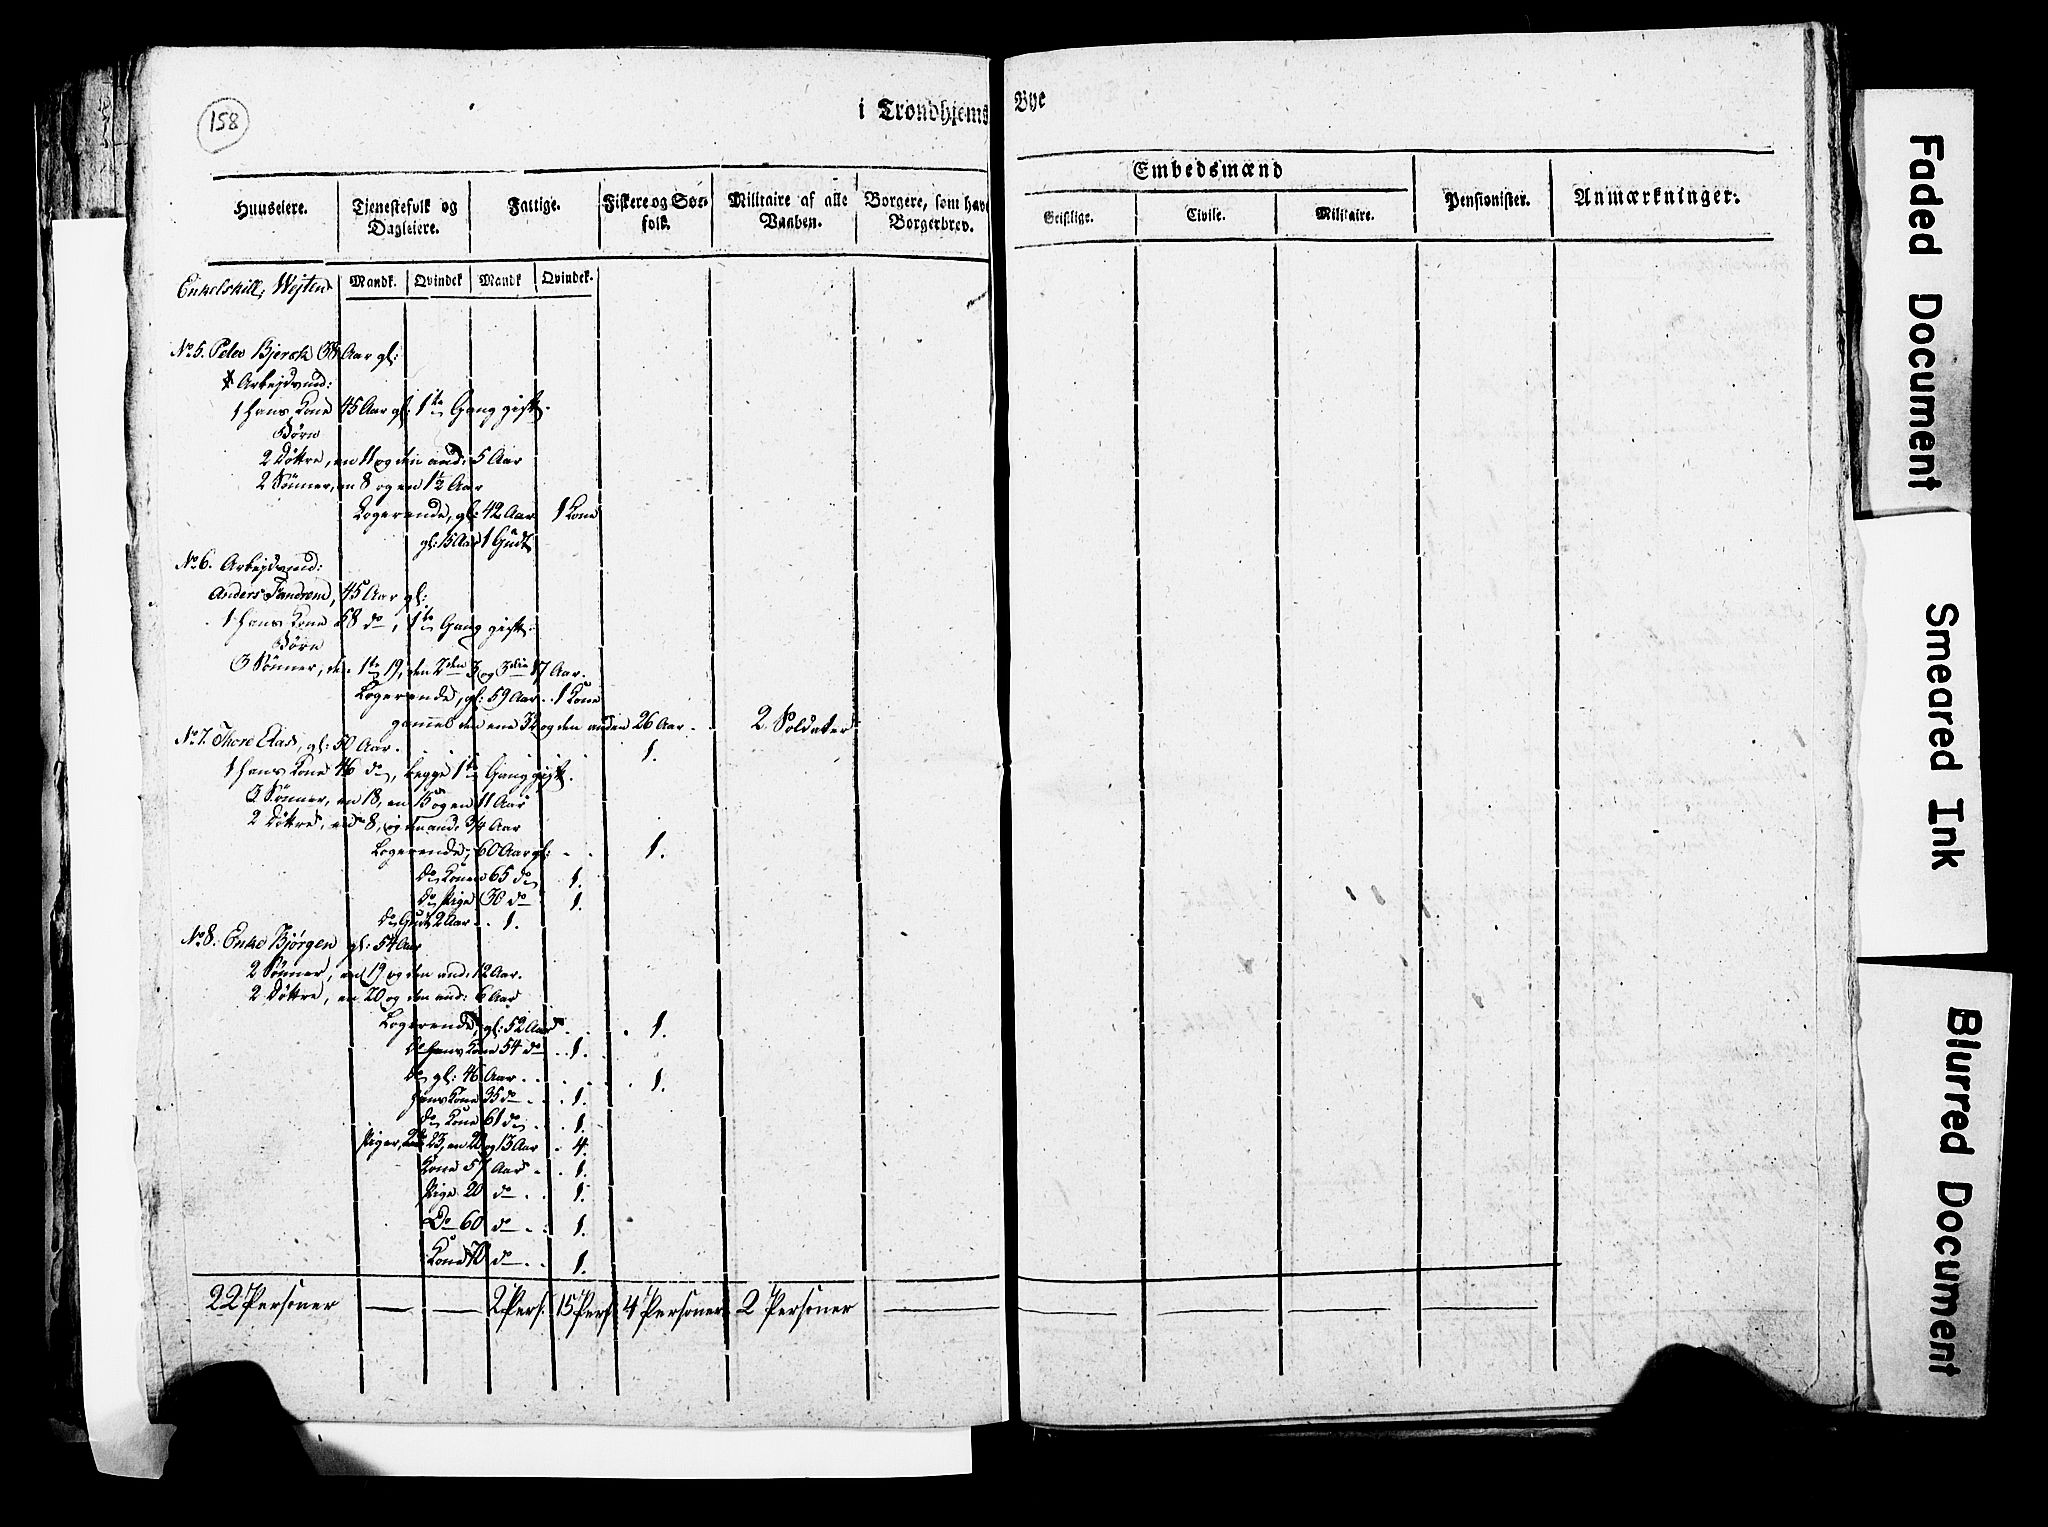 158
i Trondhjems Bye
Huuseiere. Tjenestefolk og Dagleiere. Fattige. Fiskere og Søefolk. Militaire af alle Vaaben. Borgere, som have Borgerbrev. Embedsmænd Pensionister. Anmærkninger.
Geistlige. Civile. Militaire.
Mandk. Qvindek Mandk Qvindek.
Enkelskill: Wejten
No 5. Peder Bjerck 38 Aar gl:
Arbejdsmd:
1 hans Kone 45 Aar gl: 1te Gang gift.
Børn
2 Døttre, en 11 og den and: 5 Aar
2 Sønner, en 8 og en 1½ Aar
Logerende, gl: 42 Aar 1 Kone
gl: 15 Aar 1 Gudt
No 6. Arbejdsmd:
Anders, 45 Aar gl:
1 hans Kone 58 do, 1te Gang gift.
Børn
3 Sønner, den 1te 19, den 2den 3 og 3die 17 Aar.
Logerende, gl: 59 Aar. 1 Kone
gammel den ene 32 og den anden 26 Aar. 2 Soldater
No 7. Thore Aas, gl: 50 Aar. 1.
1 hans Kone 46 do, begge 1te Gang gift.
3 Sønner, en 18, en 15 og en 11 Aar
2 Døttre, en 8, og den and: 3/4 Aar
Logerende, 60 Aar gl: 1.
do Kone 65 do 1.
do Pige 30 do 1.
do Gudt 2 Aar 1.
No 8. Enke Bjørgen gl: 54 Aar
2 Sønner, en 19 og den and: 12 Aar.
2 Døttre, en 20 og den and: 6 Aar
Logerende, gl: 52 Aar 1.
do hans Kone 54 do 1.
do gl: 46 Aar 1.
hans Kone 35 do 1.
do Kone 61 do 1.
Piger, 23, en 20 og 13 Aar 4.
Kone 57 Aar 1.
Pige 20 do 1.
Do 60 do 1.
Kone 70 do 1.
22 Personer — — 2 Pers: 15 Pers 4 Personer 2 Personer —
Faded Document
Smeared Ink
Blurred Document